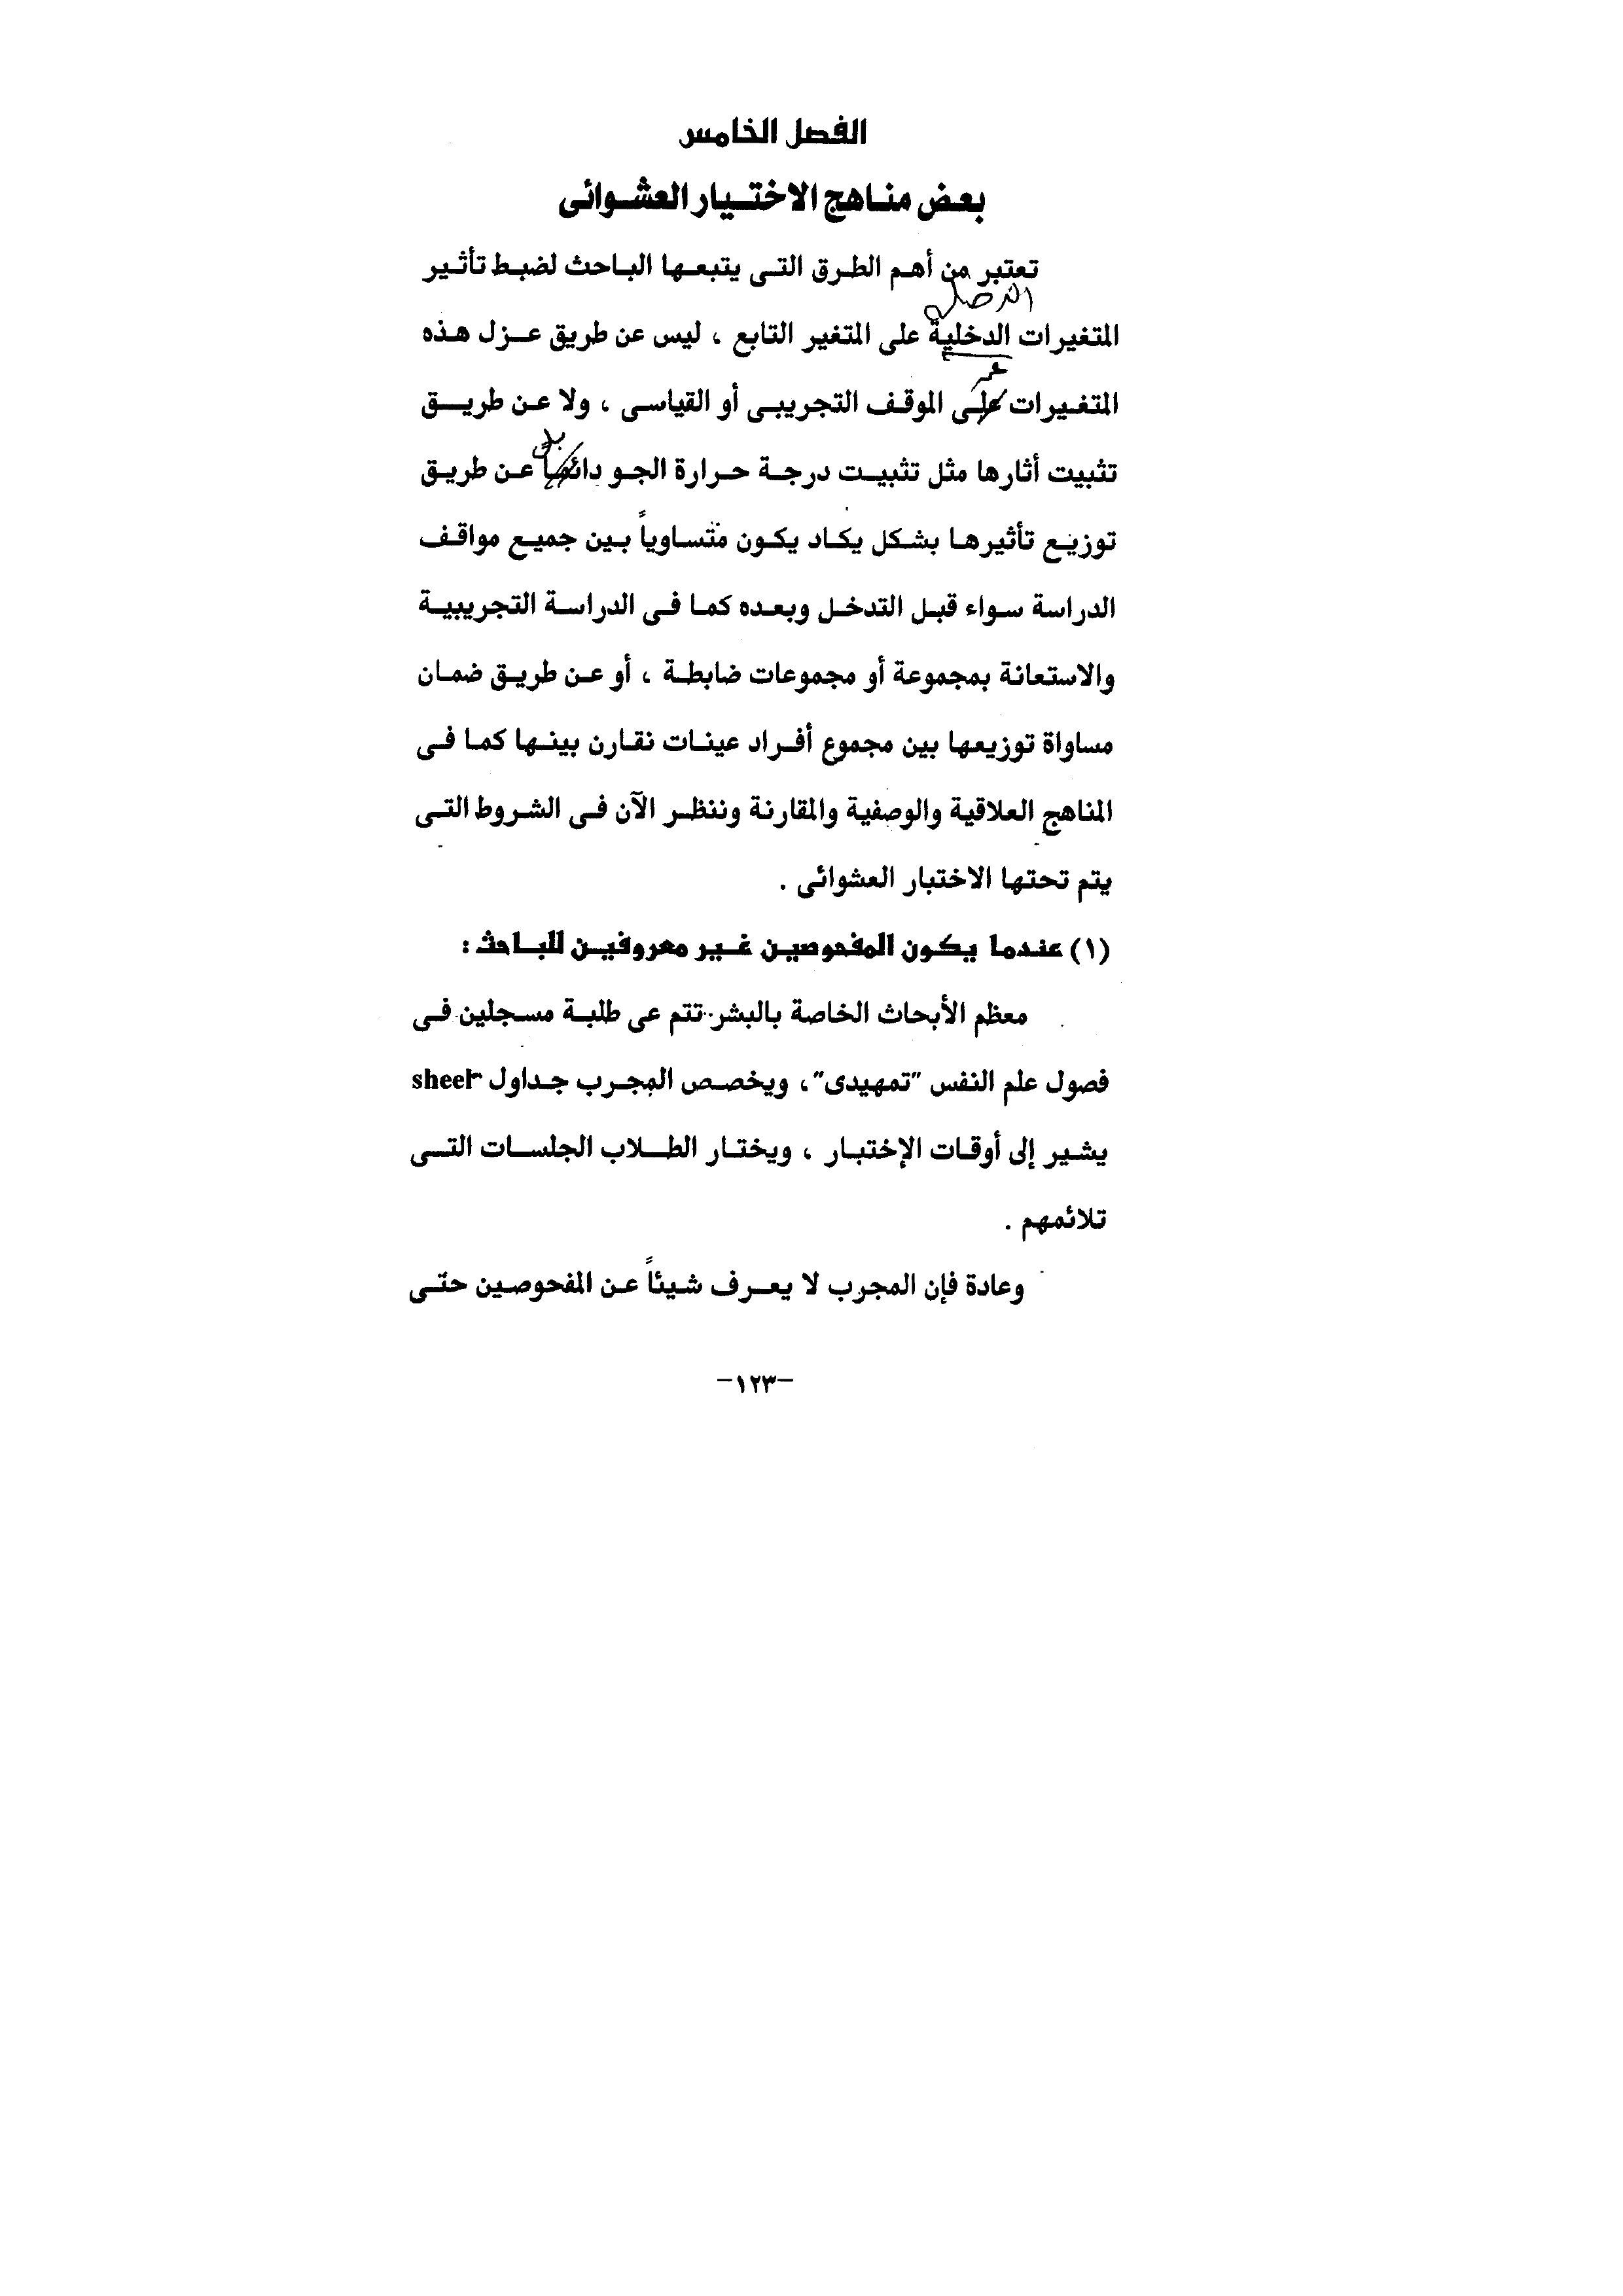 الفصل الخامس
بعض مناهج الاختيار العشوائى
تعتبر من أهم الطرق التى يتبعها الباحث لضبط تأثير
المتغيرات الدخلية على المتغير التابع ، ليس عن طريق عزل هذه
عن
المتغيرات على الموقف التجريبى أو القياسى ، ولا عن طريق
بل
تثبيت أثارها مثل تثبيت درجة حرارة الجو دائماً عن طريق
توزيع تأثيرها بشكل يكاد يكون متساوياً بين جميع مواقف
الدراسة سواء قبل التدخل وبعده كما فى الدراسة التجريبية
والاستعانة بمجموعة أو مجموعات ضابطة ، أو عن طريق ضمان
مساواة توزيعها بين مجموع أفراد عينات نقارن بينها كما فى
المناهج العلاقية والوصفية والمقارنة وننظر الآن فى الشروط التى
يتم تحتها الاختبار العشوائى .
(١) عندما يكون المفحوصين غير معروفين للباحث :
معظم الأبحاث الخاصة بالبشر تتم عى طلبة مسجلين فى
فصول علم النفس "تمهيدى"، ويخصص المجرب جداول sheer
يشير إلى أوقات الإختبار ، ويختار الطلاب الجلسات التى
تلائمهم .
وعادة فإن المجرب لا يعرف شيئاً عن المفحوصين حتى
-١٢٣-